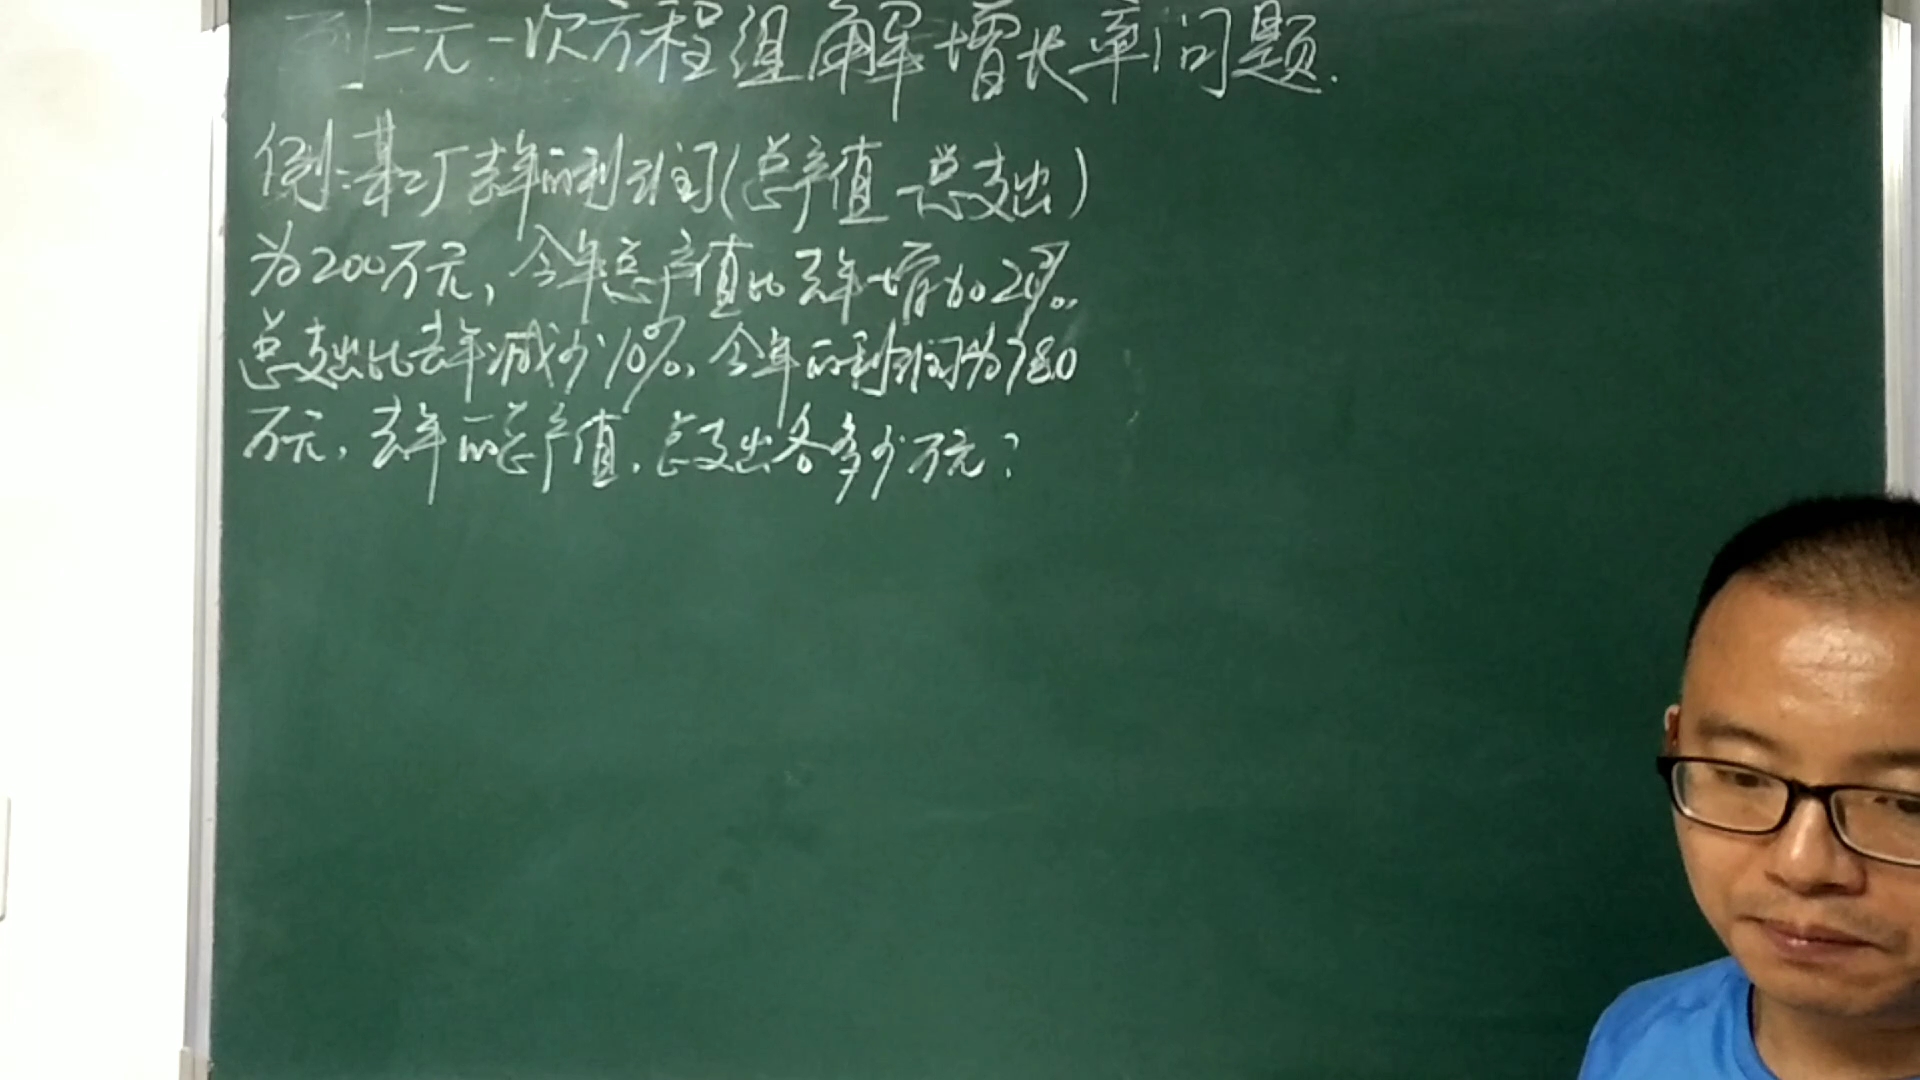 列二元一次方程组解增长率问题.
例:某工厂去年的利润(总产值-总支出)
为200万元,今年总产值比去年增加20%,
总支出比去年减少10%,今年的利润为780
万元,去年的总产值,总支出各多少万元?